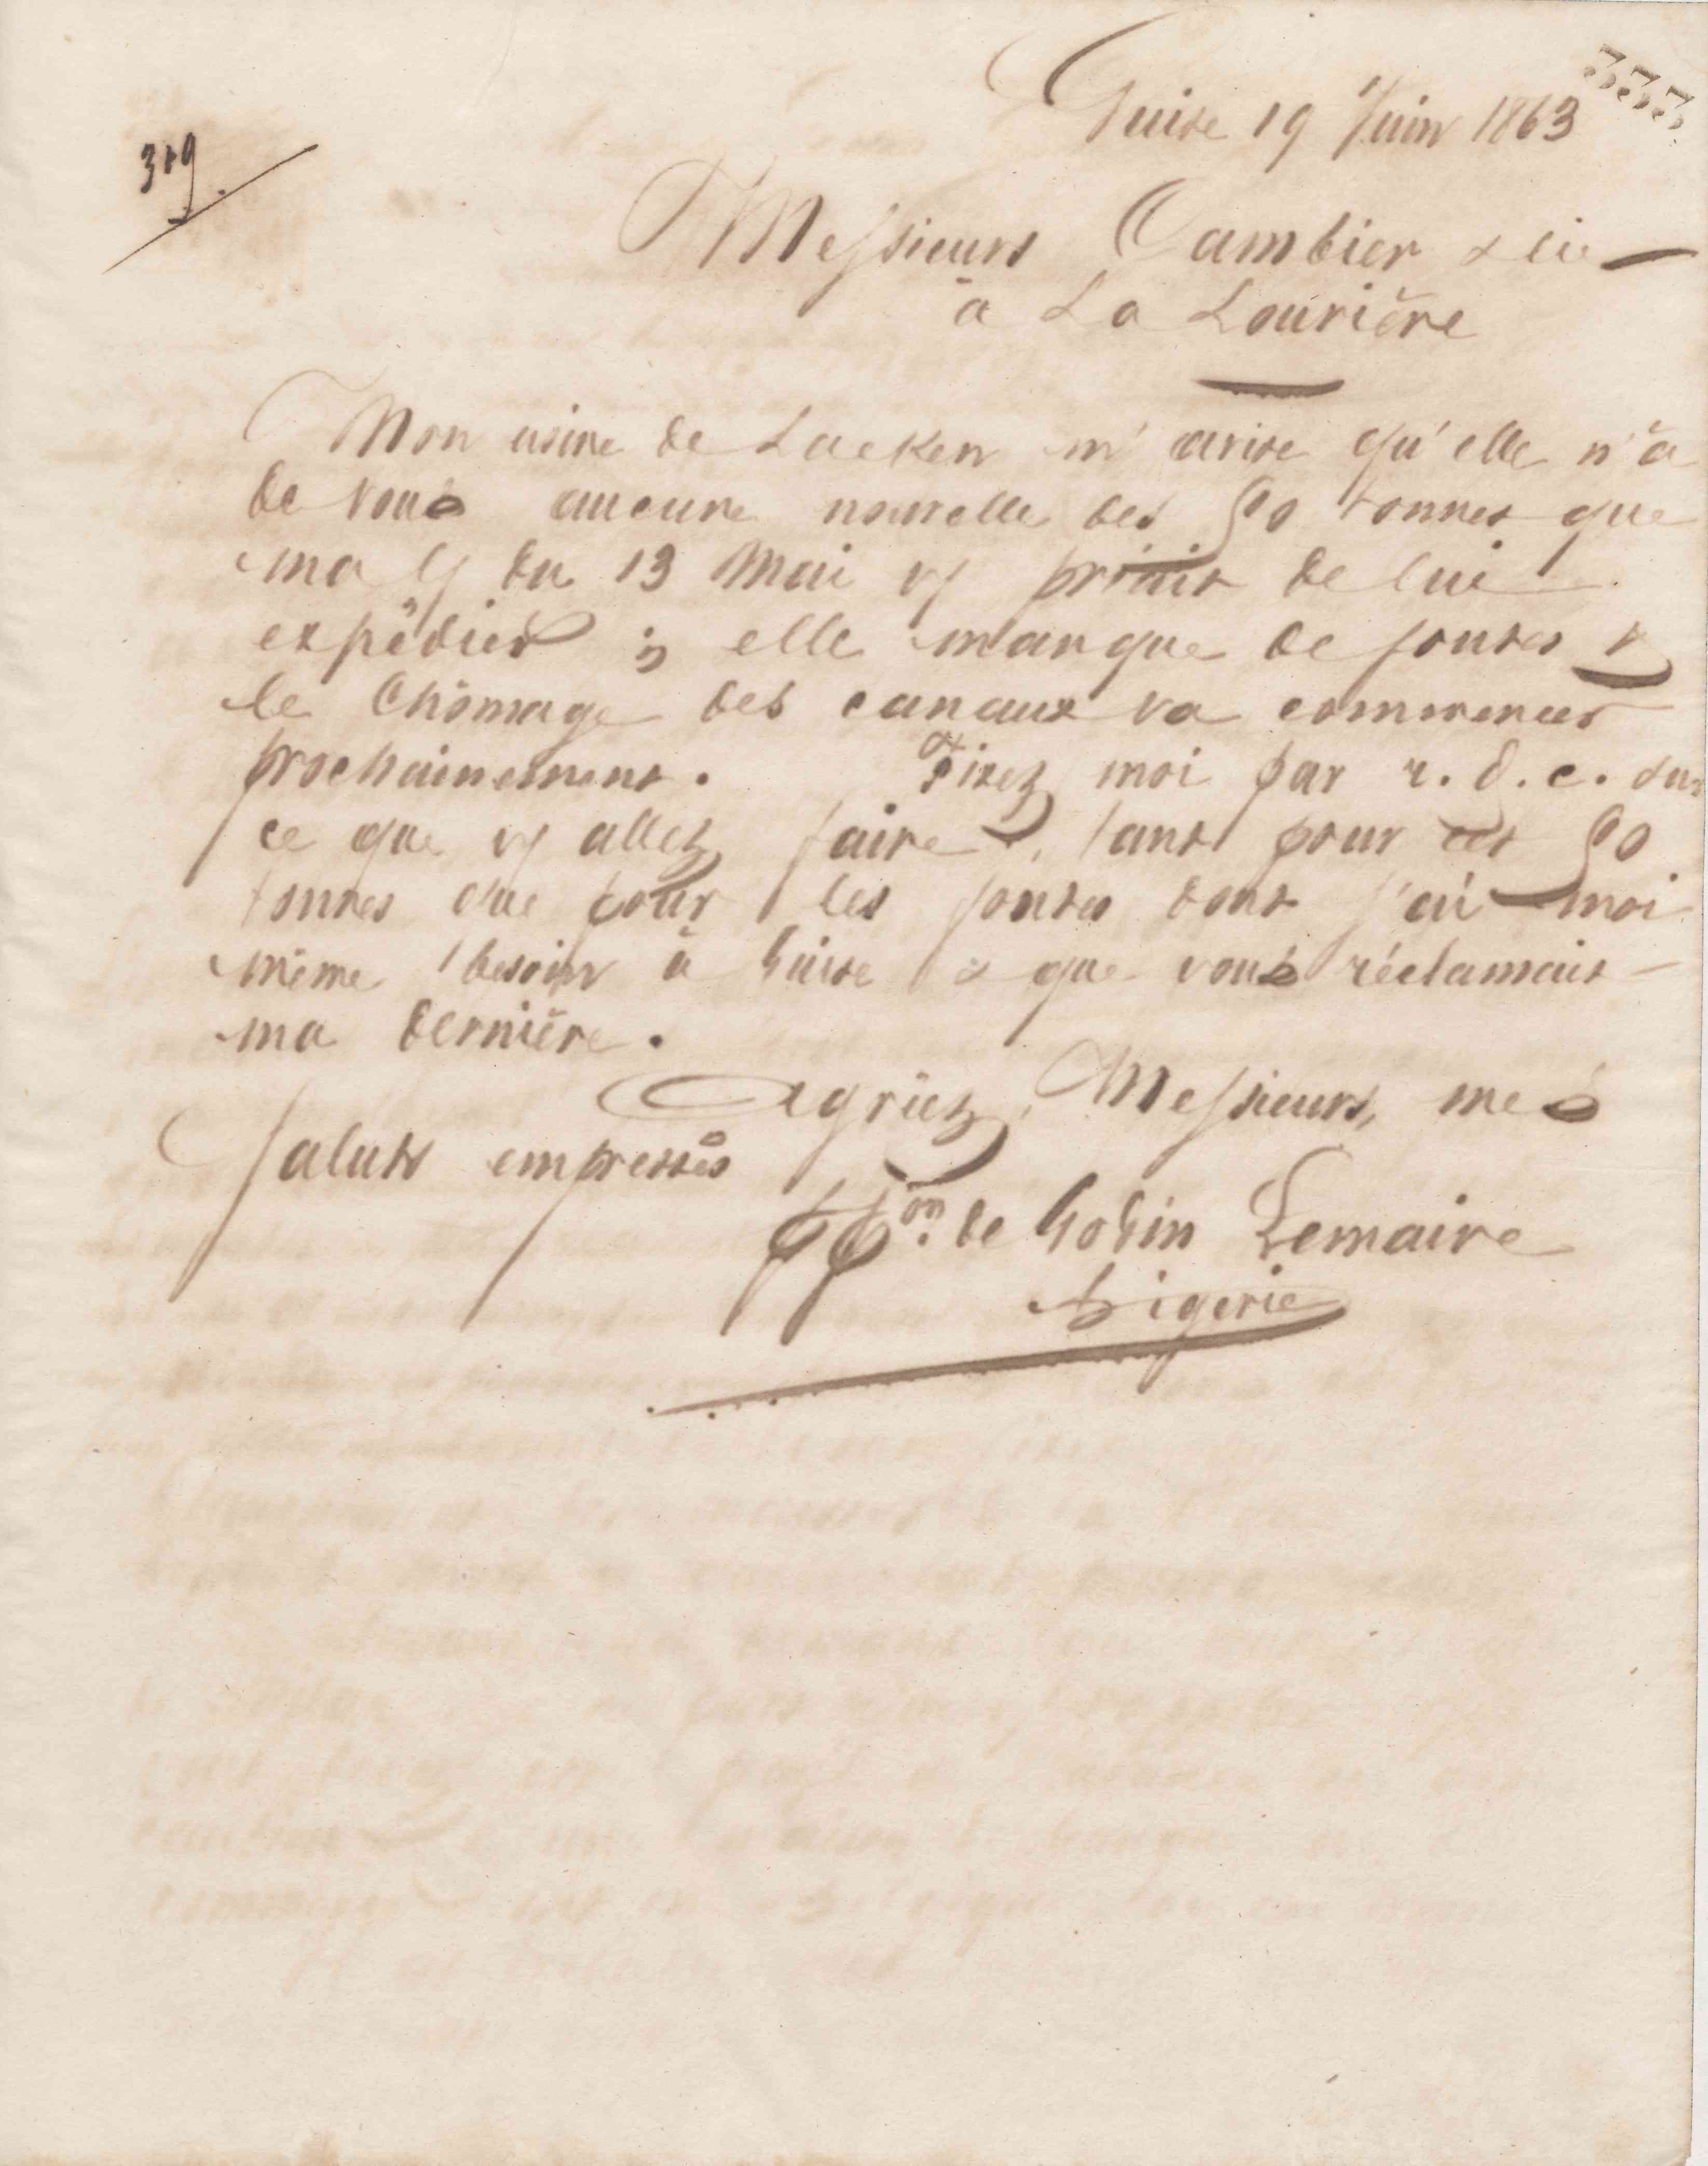 333
Guise 19 Juin 1863
319
Messieurs Cambier & Cie
à La Louvière
Mon usine de Laeken m'avise qu'elle n'a
de vous aucune nouvelle des 50 tonnes que
ma du 13 Mai priait de lui
expédier ; elle manque de fontes &
le chômage des canaux va commencer
prochainement. Fixez moi par r. d. c. sur
ce que allez faire, tant pour ces 50
tonnes que pour les fontes dont j'ai moi
même besoin à Guise & que vous réclamait
ma dernière.
Agréez, Messieurs, mes
saluts empressés
de Godin Lemaire